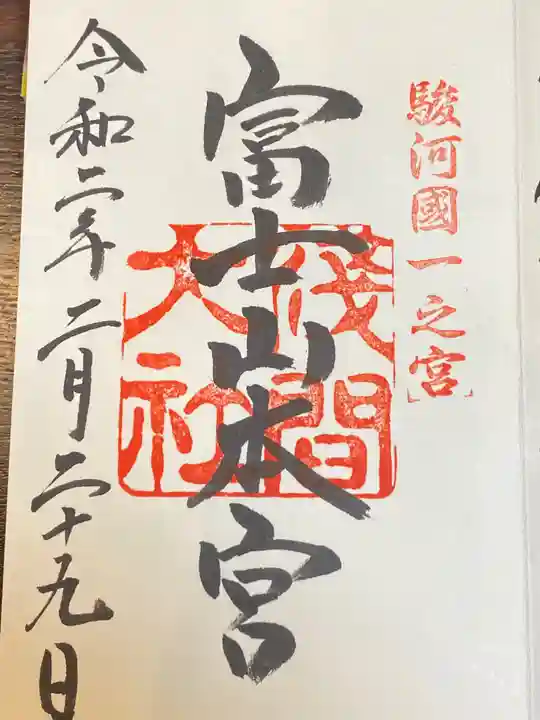 駿河國一之宮
富士山本宮
淺間大社
令和二年二月二十九日